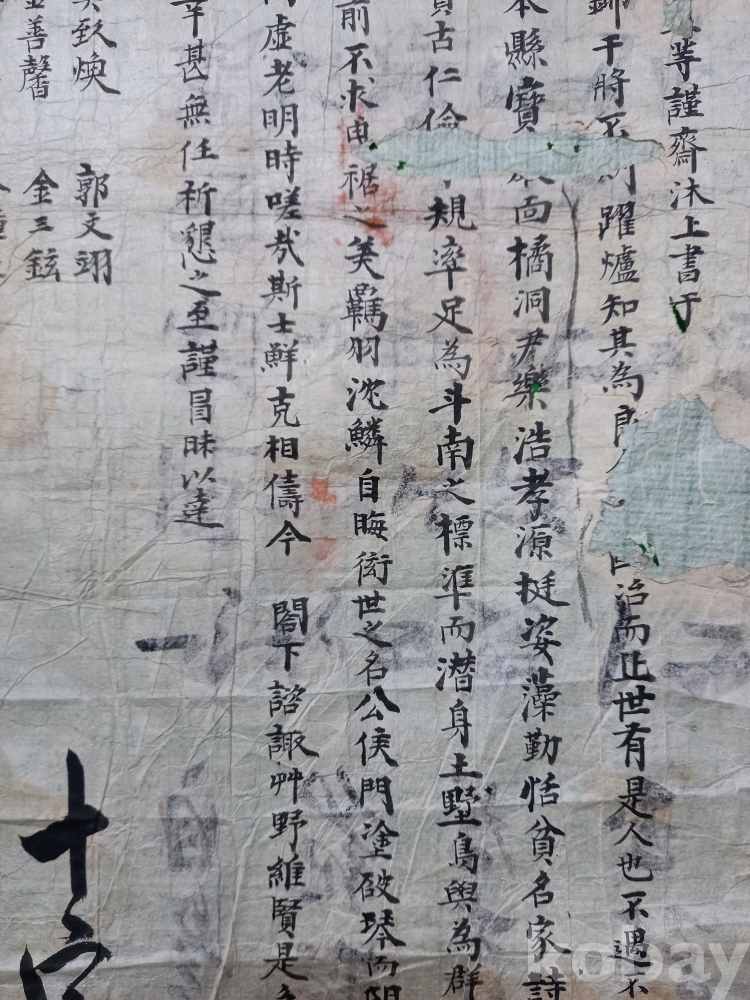 等謹齋沐上書于
干將不 躍爐知其為 治而正世有是人也不遇不
本縣寶 面橘洞尹樂浩孝源挺姿藻勤恬貧名家詩
古仁倫 規準足為斗南之標準而潛身土墅鳥與為群
前不求 裾之美羈羽沈鱗自晦衒世之名公侯門塗破琴而
虛老明時嗟哉斯士鮮克相儔今 閤下諮諏艸野維賢是
幸甚無任祈懇之至謹冒昧以達
郭文翊
煥
金三鉉
善馨
十
kobay